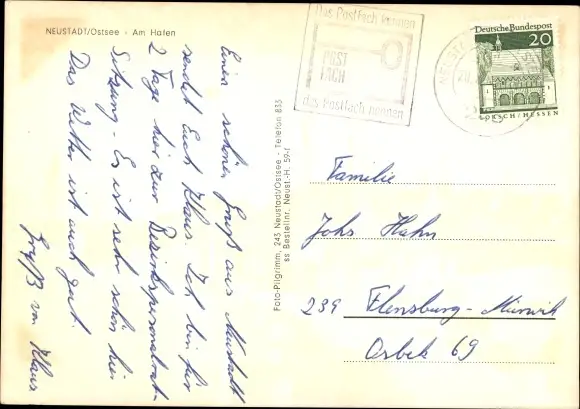 NEUSTADT/Ostsee - Am Hafen
Einen schönen Gruß aus Neustadt
sendet Euch Klaus. Ich bin für
2 Tage hier zur Bezirkspersonalrat-
Sitzung - Es ist sehr schön hier
Das Wetter ist auch gut.
Gruß von Klaus
Foto-Pilgrimm, 243 Neustadt/Ostsee - Telefon 835
ss Bestellnr. Neust.-H. 59-f
Das Postfach kennen
POST
FACH
das Postfach nennen
Deutsche Bundespost
20
LORSCH/HESSEN
Familie
Johs Hahn
239 Flensburg-Mürwik
Osbek 69